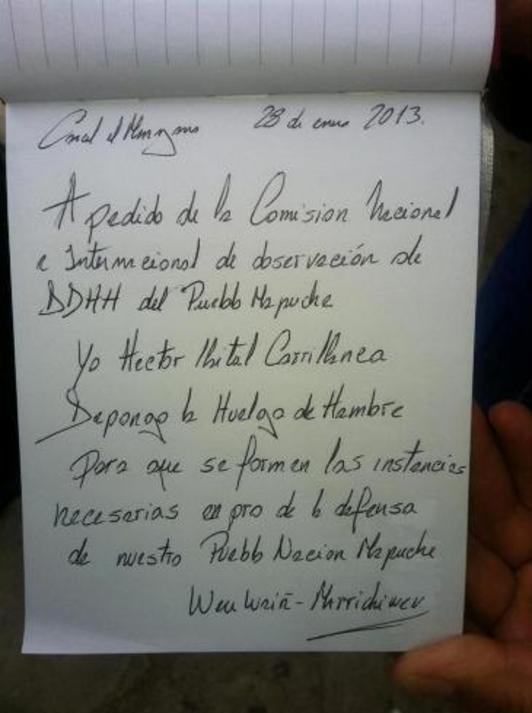 Canal el Manzano 28 de enero 2013.
A pedido de la Comision Nacional
e Internacional de observación de
DDHH del Pueblo Mapuche
Yo Hector Llaitul Carrillanca
Depongo la Huelga de Hambre
Para que se formen las instancias
necesarias en pro de la defensa
de nuestro Pueblo Nacion Mapuche
Weuwaiñ - Marrichiweu